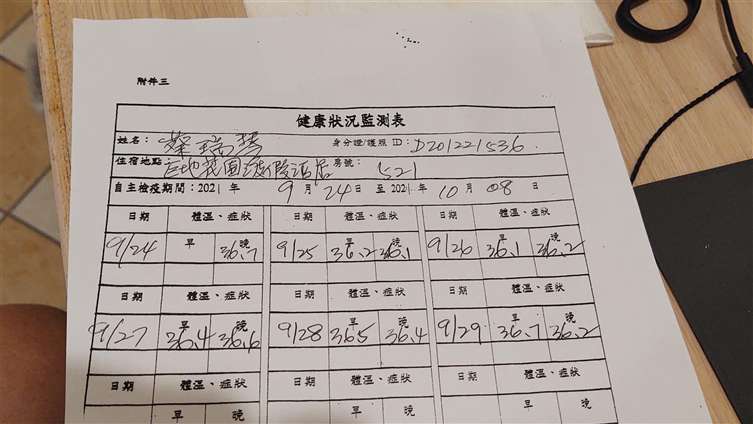 附件三
健康狀況監測表
姓名： 蔡瑞 身分證/護照 ID： D201221536
住宿地點： 花園渡假酒店 房號： 521
自主檢疫期間：2021 年 9 月 24 日 至 2021 年 10 月 08 日
日期 體溫、症狀 日期 體溫、症狀 日期 體溫、症狀
9/24 早 晚 36.7 9/25 早 36.2 晚 36.1 9/26 早 36.1 晚 36.2
日期 體溫、症狀 日期 體溫、症狀 日期 體溫、症狀
9/27 早 36.4 晚 36.6 9/28 早 36.5 晚 36.4 9/29 早 36.7 晚 36.2
日期 體溫、症狀 日期 體溫、症狀 日期 體溫、症狀
早 晚 早 晚 早 晚